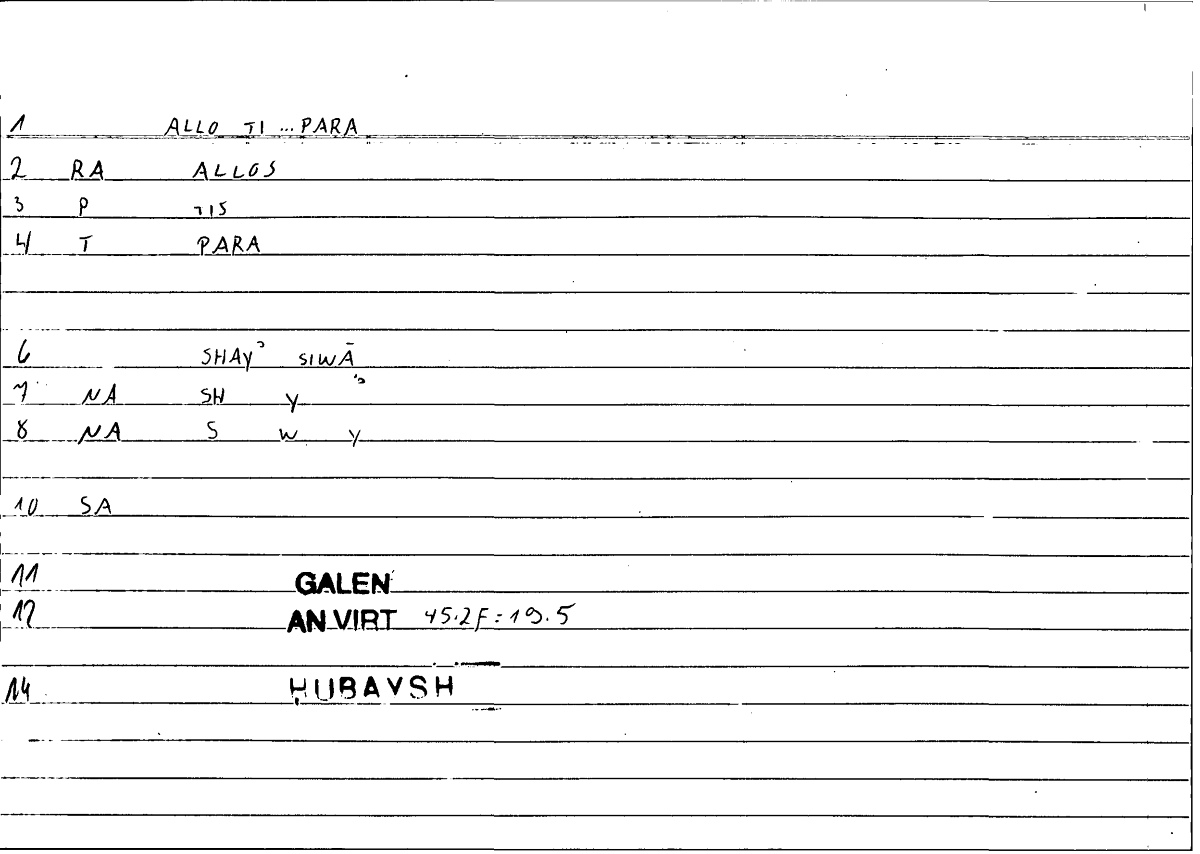 1 ALLO TI ... PARA
2 RA ALLOS
3 P TIS
4 T PARA
6 SHAYʾ SIWĀ
7 NA SH Y ʾ
8 NA S W Y
10 SA
11 GALEN
12 AN VIRT 45.2F = 19.5
14 ḤUBAYSH